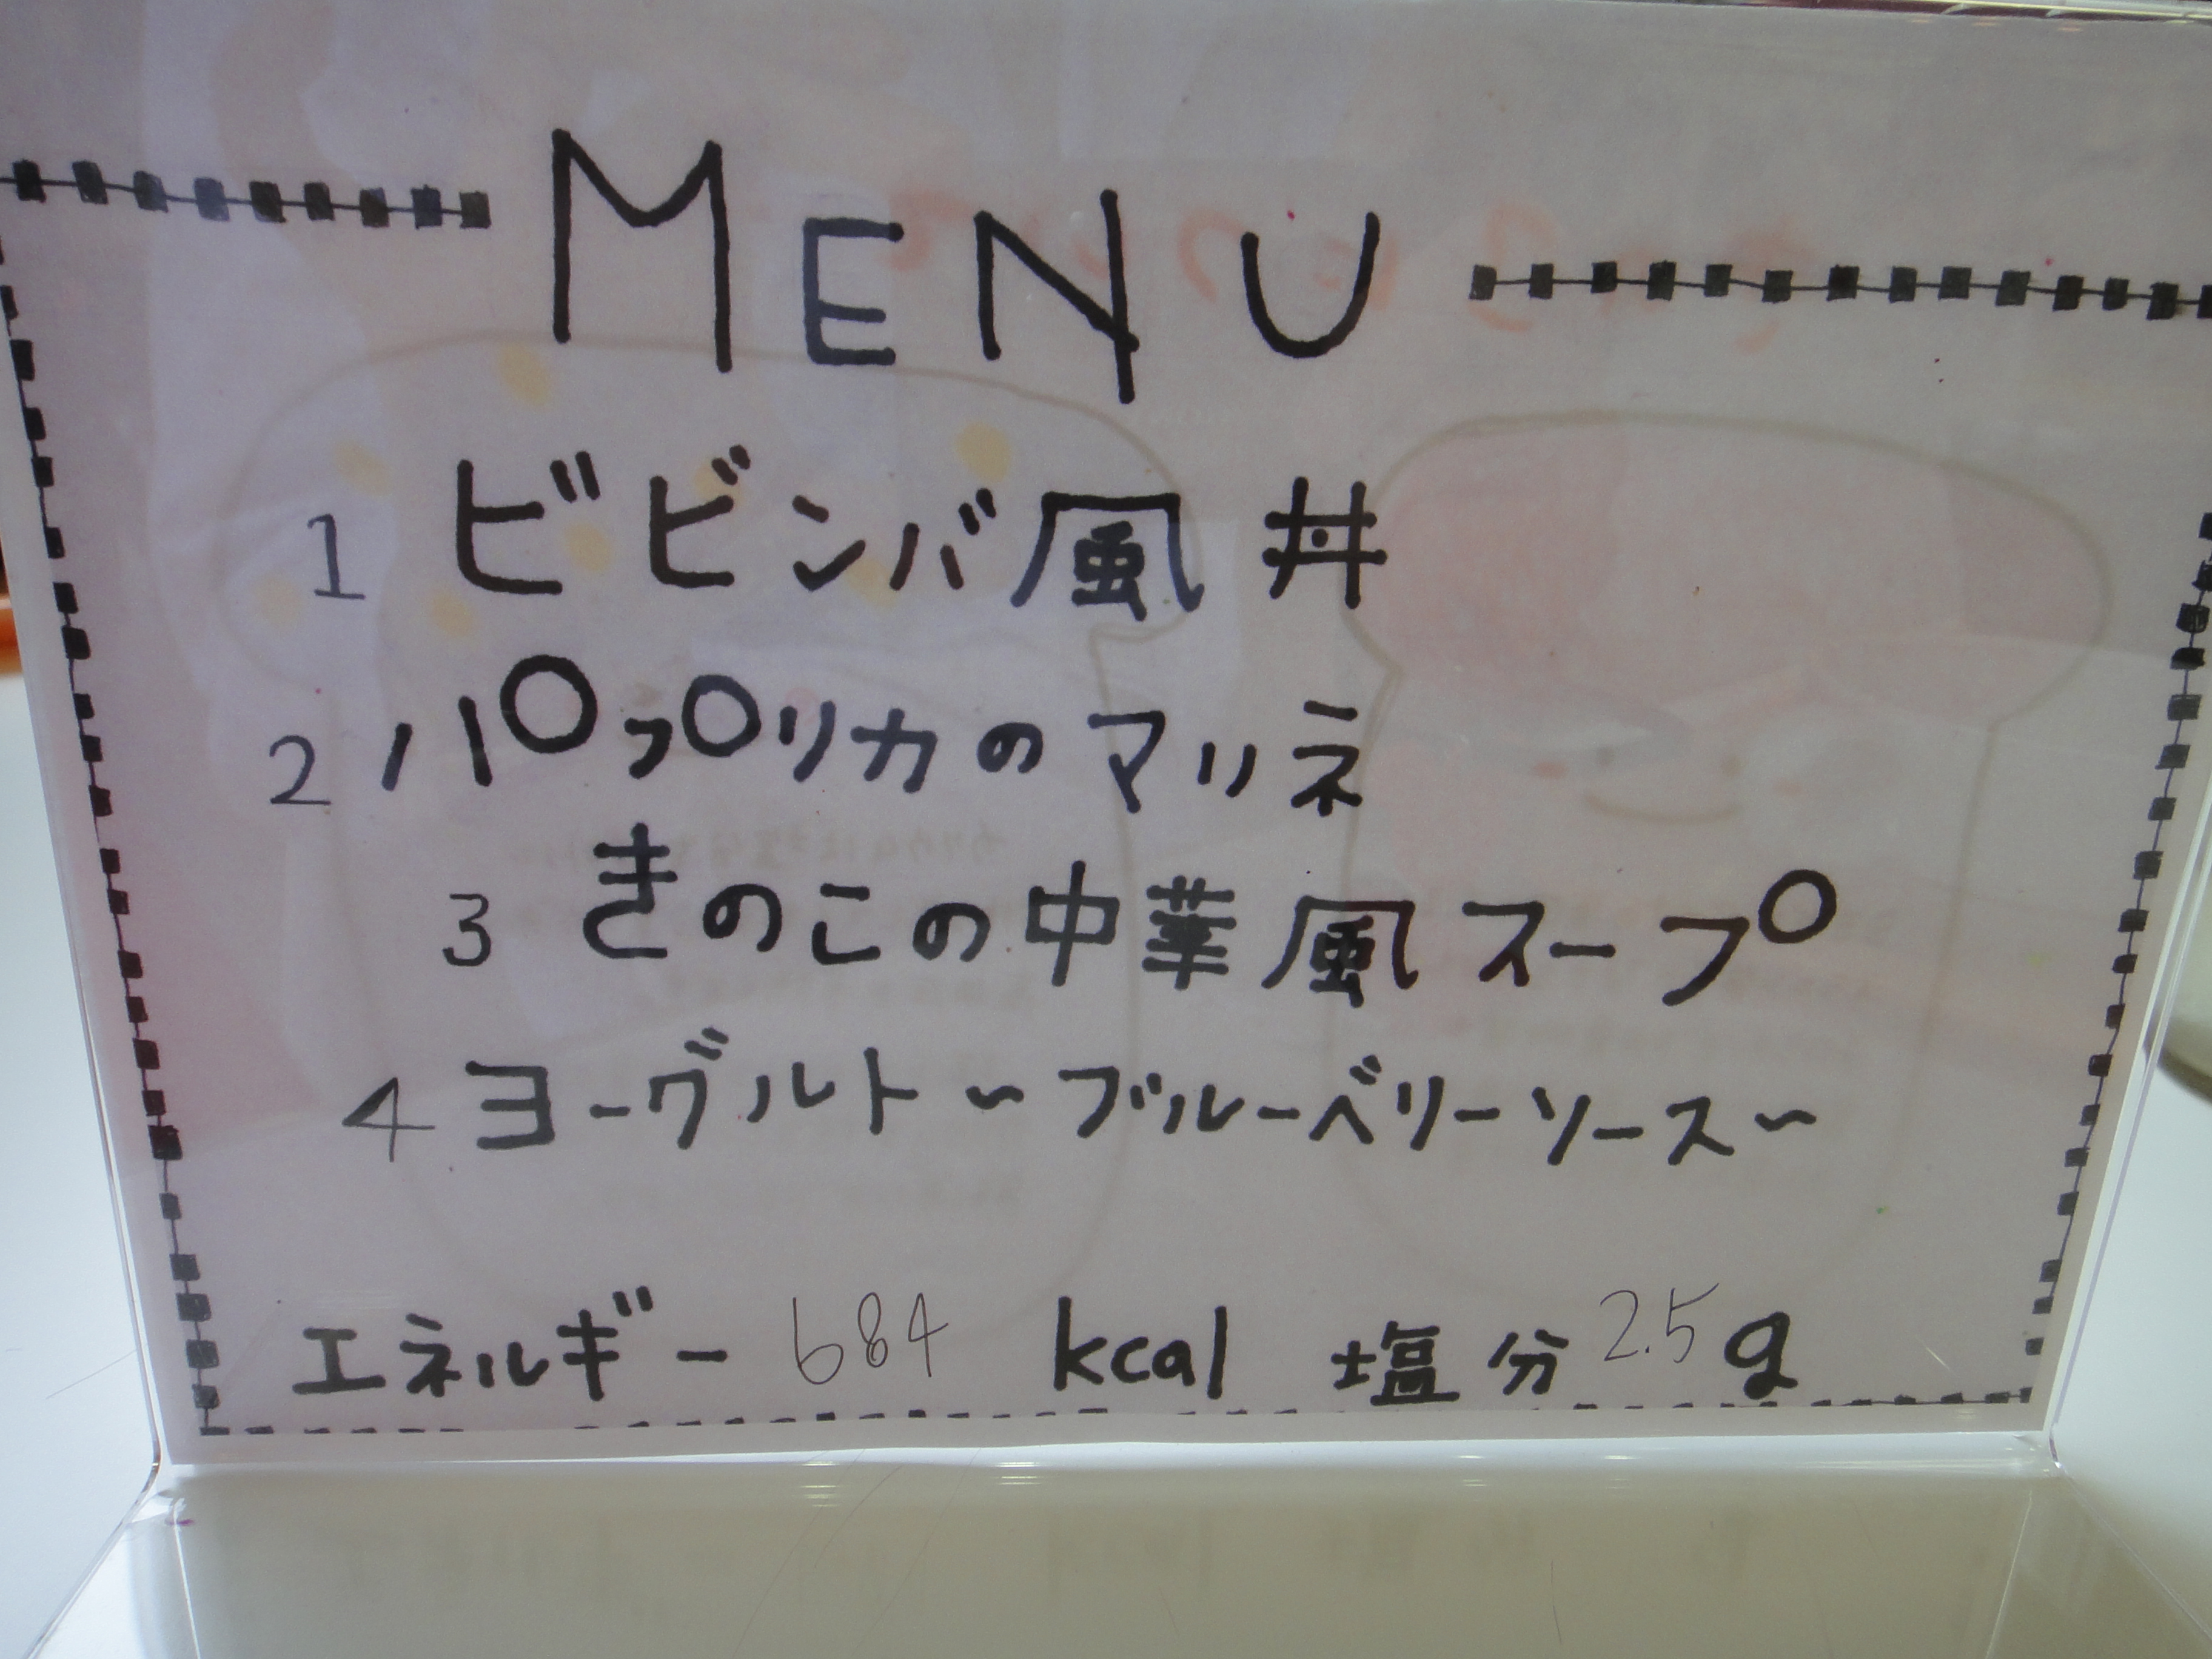 MENU
1 ビビンバ風丼
2 パプリカのマリネ
3 きのこの中華風スープ
4 ヨーグルト~ブルーベリーソース~
エネルギー 684 kcal 塩分 2.5g